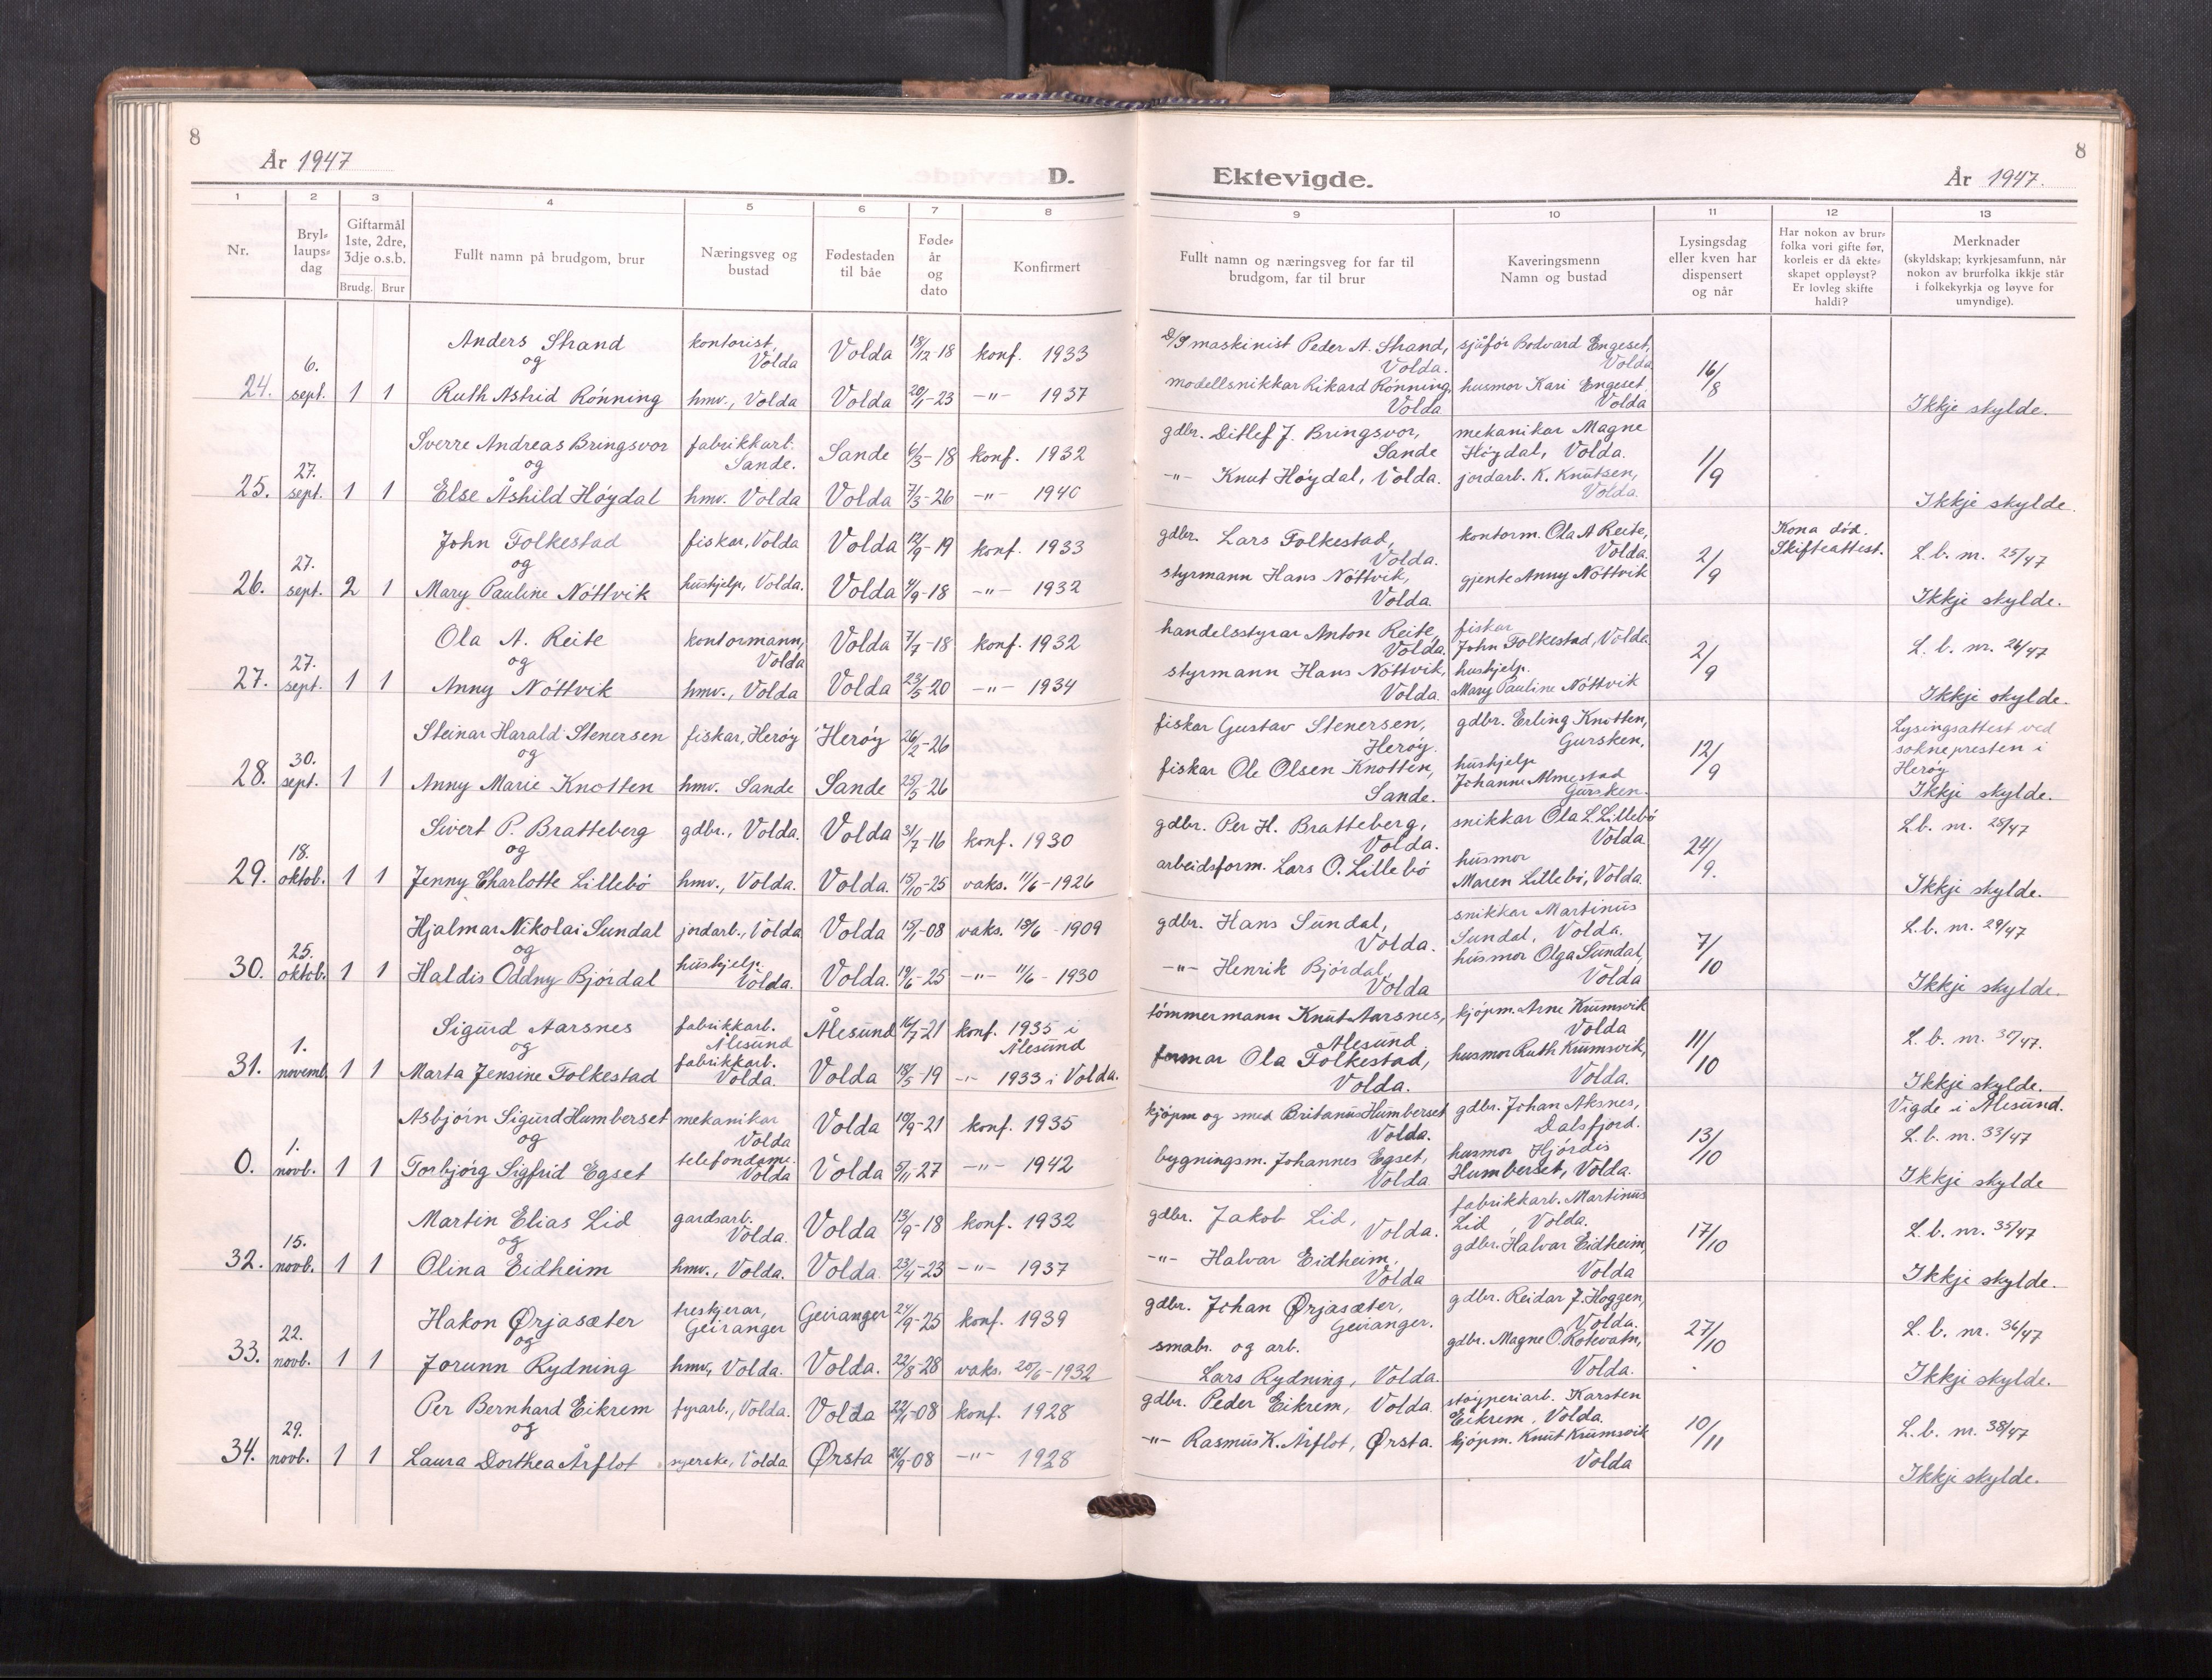 8
År 1947
D.
1 2 3 4 5 6 7 8
Nr.
Bryl-
laups-
dag
Giftarmål
1ste, 2dre,
3dje o.s.b.
Brudg. Brur
Fullt namn på brudgom, brur
Næringsveg og
bustad
Fødestaden
til båe
Føde-
år
og
dato
Konfirmert
Anders Strand kontorist, Volda Volda 18/12-18 konf. 1933
og
24. 6. sept. 1 1 Ruth Astrid Rönning hmv., Volda Volda 20/1-23 -"- 1937
Sverre Andreas Bringsvor fabrikkarb. Sande. Sande 6/3-18 konf. 1932
og
25. 27. sept. 1 1 Else Åshild Höydal hmv. Volda Volda 7/3-26 -"- 1940
John Folkestad fiskar, Volda Volda 12/9-19 konf. 1933
og
26. 27. sept. 2 1 Mary Pauline Nöttvik hushjelp, Volda. Volda 4/9-18 -"- 1932
Ola A. Reite kontormann, Volda Volda 7/7-18 konf. 1932
og
27. 27. sept. 1 1 Anny Nöttvik hmv., Volda Volda 23/5-20 -"- 1934
Steinar Harald Stenersen fiskar, Heröy Heröy 26/2-26
og
28. 30. sept. 1 1 Anny Marie Knotten hmv. Sande Sande 25/5-26
Sivert P. Bratteberg gdbr., Volda. Volda 31/7-16 konf. 1930
og
29. 18. oktob. 1 1 Jenny Charlotte Lillebö hmv., Volda. Volda. 15/10-25 vaks. 11/6-1926
Hjalmar Nikolai Sundal jordarb., Volda Volda 15/1-08 vaks. 18/6-1909
og
30. 25. oktob. 1 1 Haldis Oddny Björdal hushjelp. Volda. Volda. 19/6-25 -"- 11/6-1930
Sigurd Aarsnes fabrikkarb. Ålesund Ålesund 16/7-21 konf. 1935 i Ålesund
og
31. 1. novemb. 1 1 Marta Jensine Folkestad fabrikkarb. Volda. Volda 18/5-19 -"- 1933 i Volda.
Asbjörn Sigurd Humberset mekanikar Volda Volda 10/9-21 konf. 1935
og
0. 1. novb. 1 1 Torbjörg Sigfrid Egset telefondame. Volda Volda 5/11-27 -"- 1942
Martin Elias Lid gardsarb. Volda. Volda 13/9-18 konf. 1932
og
32. 15. novb. 1 1 Olina Eidheim hmv., Volda. Volda. 23/4-23 -"- 1937
Hakon Ørjasæter treskjerar, Geiranger Geiranger 24/9-25 konf. 1939
og
33. 22. novb. 1 1 Jorunn Rydning hmv, Volda. Volda. 22/8-28 vaks. 20/6-1932
Per Bernhard Eikrem fyrarb., Volda. Volda 22/1-08 konf. 1928
og
34. 29. novb. 1 1 Laura Dorthea Årflot syerske, Volda Ørsta 26/9-08 -"- 1928
8
Ektevigde.
År 1947.
9 10 11 12 13
Fullt namn og næringsveg for far til
brudgom, far til brur
Kaveringsmenn
Namn og bustad
Lysingsdag
eller kven har
dispensert
og når
Har nokon av brur-
folka vori gifte før,
korleis er då ekte-
skapet oppløyst?
Er lovleg skifte
haldi?
Merknader
(skyldskap; kyrkjesamfunn, når
nokon av brurfolka ikkje står
i folkekyrkja og løyve for
umyndige).
D/S maskinist Peder A. Strand, Volda. sjåför Bodvard Engeset, Volda 16/8
modellsnikkar Rikard Rönning, Volda husmor Kari Engeset Volda Ikkje skylde.
gdbr. Ditlef J. Bringsvor, Sande mekanikar Magne Höydal, Volda. 11/9
-"- Knut Höydal, Volda. jordarb. K. Knutsen, Volda. Ikkje skylde.
gdbr. Lars Folkestad, Volda. kontorm. Ola A Reite, Volda. 2/9 Kona död. Skifteattest. L.b. nr. 25/47
styrmann Hans Nöttvik, Volda. gjente Anny Nöttvik Ikkje skylde.
handelsstyrar Anton Reite, Volda. fiskar John Folkestad, Volda 2/9 L.b. nr. 26/47
styrmann Hans Nöttvik, Volda. hushjelp. Mary Pauline Nöttvik Ikkje skylde.
fiskar Gustav Stenersen, Heröy. gdbr. Erling Knotten, Gursken, 12/9 Lysingsattest ved soknepresten i Heröy
fiskar Ole Olsen Knotten, Sande. hushjelp Johanne Almestad Gursken. Ikkje skylde.
gdbr. Per H. Bratteberg, Volda. snikkar Ola L Lillebö Volda 24/9. L.b. nr. 28/47
arbeidsform. Lars O. Lillebö husmor Maren Lillebö, Volda. Ikkje skylde.
gdbr. Hans Sundal, Volda. snikkar Martinus Sundal, Volda. 7/10 L.b. nr. 29/47
-"- Henrik Björdal, Volda husmor Olga Sundal, Volda Ikkje skylde.
tömmermann Knut Aarsnes, Ålesund kjöpm. Arne Krumsvik Volda 11/10 L.b. nr. 30/47.
formar Ola Folkestad, Volda. husmor Ruth Krumsvik, Volda. Ikkje skylde.
kjöpm og smed Britanus Humberset Volda. gdbr. Johan Aksnes, Dalsfjord. 13/10 Vigde i Ålesund. L.b. nr. 33/47
bygningsm. Johannes Egset, Volda husmor Hjördis Humberset, Volda. Ikkje skylde
gdbr. Jakob Lid, Volda. fabrikkarb. Martinus Lid, Volda. 17/10 L.b. nr. 35/47
-"- Halvar Eidheim, Volda gdbr. Halvar Eidheim, Volda Ikkje skylde.
gdbr. Johan Ørjasæter, Geiranger. gdbr. Reidar J. Hoggen, Volda. 27/10 L.b. nr. 36/47
smabr. og arb. Lars Rydning, Volda. gdbr. Magne O. Rotevatn, Volda. Ikkje skylde.
gdbr. Peder Eikrem, Volda. støyperiarb. Karsten Eikrem, Volda. 10/11 L.b. nr. 38/47
-"- Rasmus K. Årflot, Ørsta. kjöpm. Knut Krumsvik Volda Ikkje skylde.